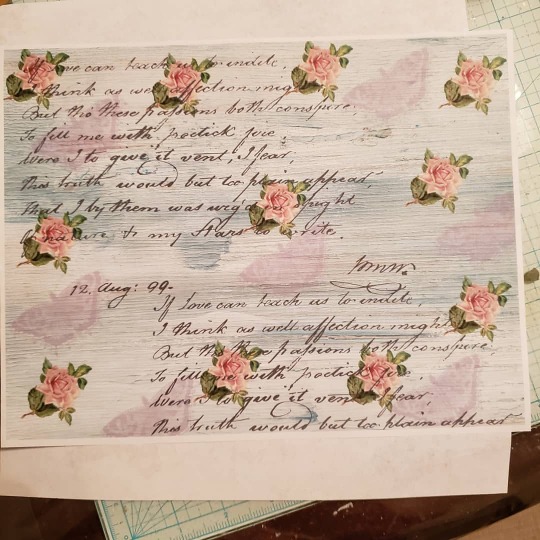 If love can teach us to indite,
I think as well affection might
But tho these passions both conspire,
To fill me with poetick fire,
Were I to give it vent, I fear,
This truth would but too plain appear,
That I by them was urg'd in spight
to my Stars to write.
12. Aug: 99.
If love can teach us to indite,
I think as well affection might
But tho these passions both conspire,
To fill me with poetick fire,
Were I to give it vent, I fear,
This truth would but too plain appear